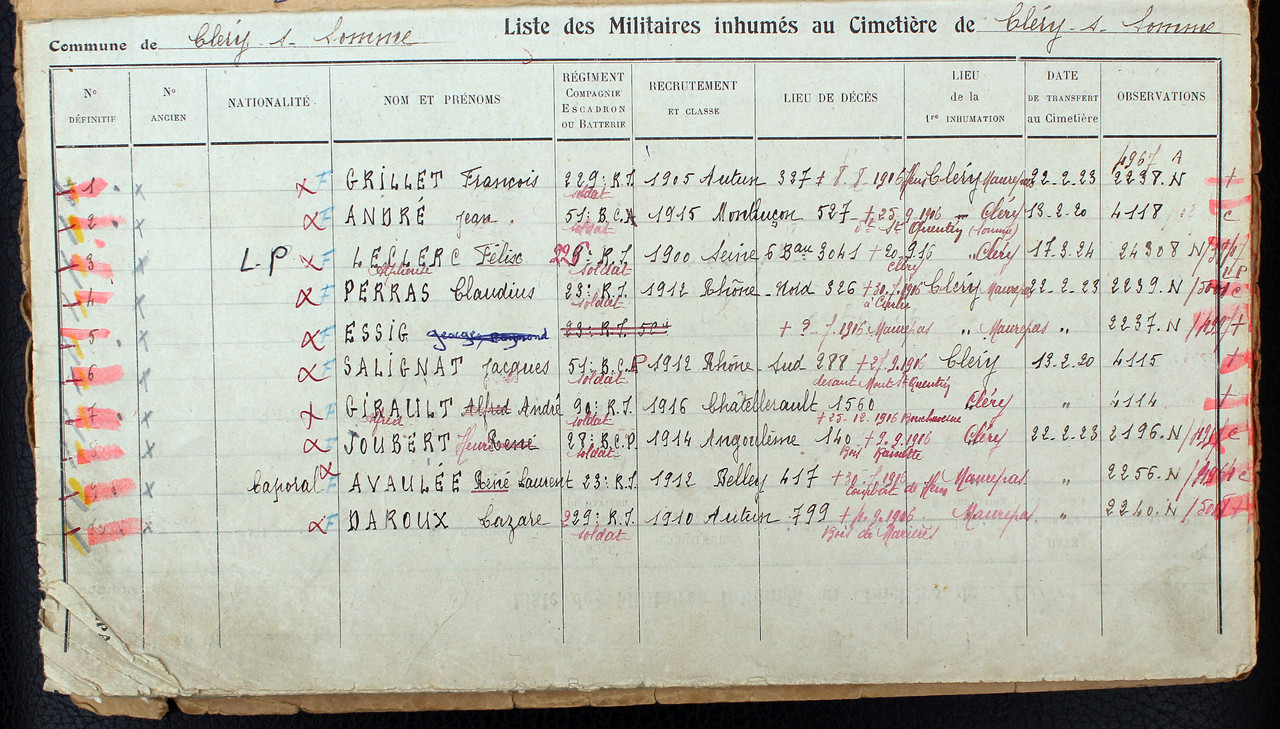 Commune de Cléry-s-Somme Liste des Militaires inhumés au Cimetière de Cléry-s-Somme
N° DÉFINITIF N° ANCIEN NATIONALITÉ NOM ET PRÉNOMS RÉGIMENT COMPAGNIE ESCADRON OU BATTERIE RECRUTEMENT ET CLASSE LIEU DE DÉCÈS LIEU de la 1re INHUMATION DATE DE TRANSFERT au Cimetière OBSERVATIONS
4967 A
1 x F GRILLET François 229: R.I. 1905 Autun 327 + 8.8.1906 Cléry Maurepas 22-2-23 2238.N +
soldat
2 x F ANDRÉ Jean 51: B.C.A 1915 Montluçon 527 + 25.9.1906 Cléry 13-2-20 4118 c
soldat St Quentin (Somme)
3 x L-P LECLERC Félix 226: R.I. 1900 Seine 6 Bau 3041 + 20.9.16 " Cléry 17.3.24 24308 N
Alphonse soldat Cléry
4 x F PERRAS Claudius 23: R.I. 1912 Rhône-Nord 326 + 30.7.1906 Cléry Maurepas 22-2-23 2239.N
soldat
5 x F ESSIG georges raymond 23: R.I. + ?.7.1906 Maurepas " Maurepas " 2237.N
6 x F SALIGNAT Jacques 51: B.C.P 1912 Rhône Sud 288 + 27.9.1906 Cléry 13-2-20 4115 +
soldat devant Mont St Quentin
7 x F GIRAULT Alfred André 90: R.I. 1916 Châtellerault 1560 Cléry " 4114 +
Alfred soldat + 25-12-1906 Bouchavesne
8 x F JOUBERT Henri René 28: B.C.P. 1914 Angoulême 140 + 9.9.1906 Cléry 22-2-23 2196.N
soldat Bois Rainette
9 x Caporal F AVAULÉE René Laurent 23: R.I. 1912 Belley 417 + 30.7.1906 Maurepas " 2256.N
10 F DAROUX Lazare 229: R.I. 1910 Autun 799 Maurepas " 2240.N
soldat Bois de Marières